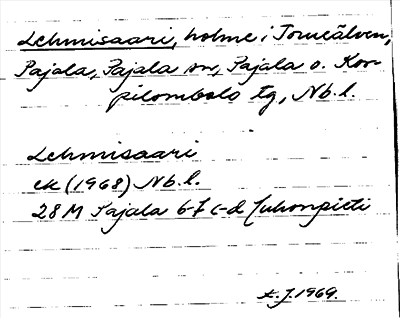 Lehmisaari, holme i Torneälven,
Pajala, Pajala sn, Pajala o. Kor-
pilombolo tg, Nb.l.
Lehmisaari
ek (1968) Nb.l.
28 M Pajala 6-7 c-d Juhonpieti
A.J. 1969.